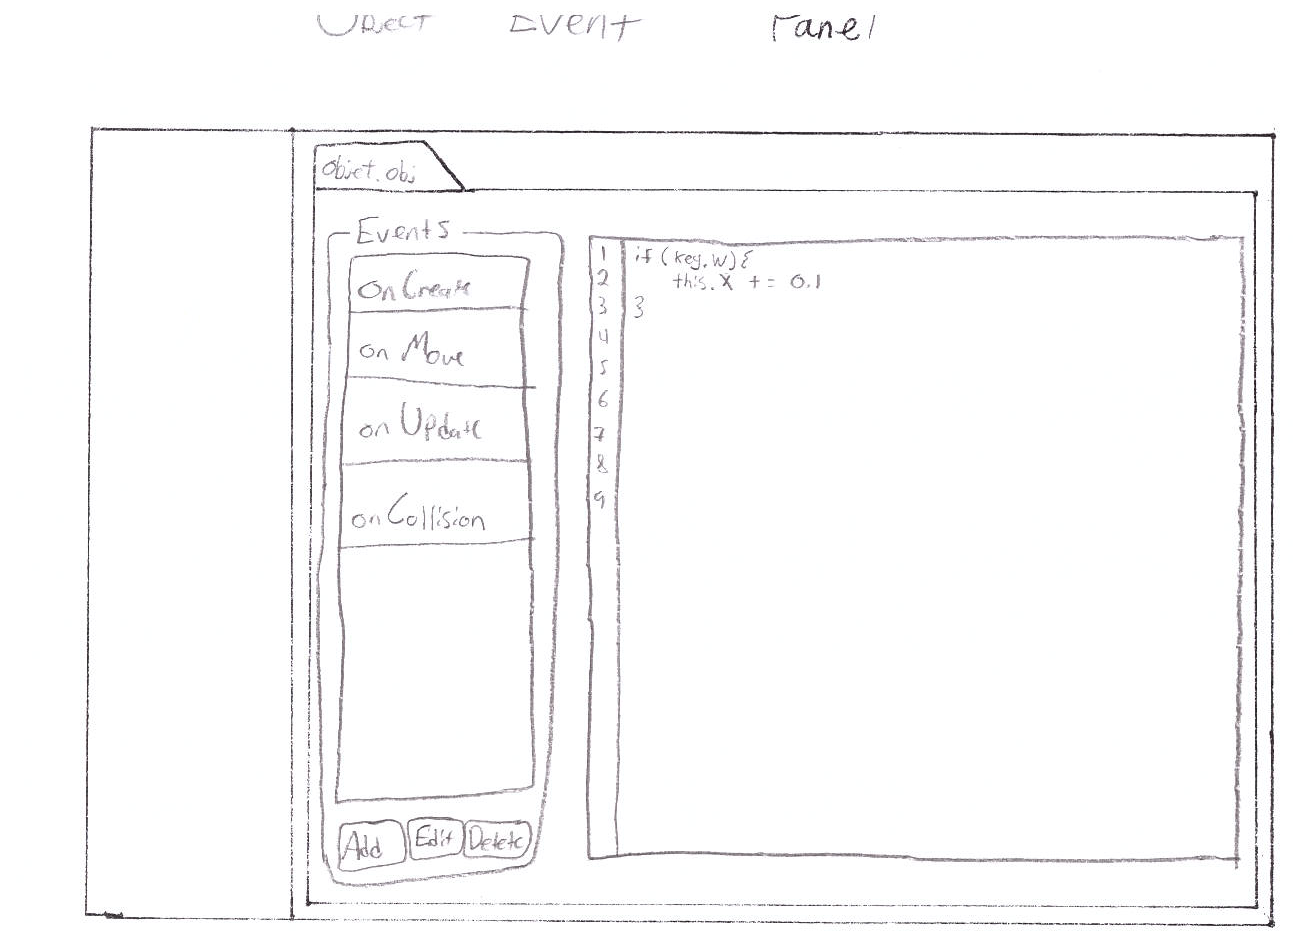 Object Event Panel
Objet.obj
Events
on Create
on Move
on Update
on Collision
Add Edit Delete
1 if (key.W){
2 this.X += 0.1
3 }
4
5
6
7
8
9